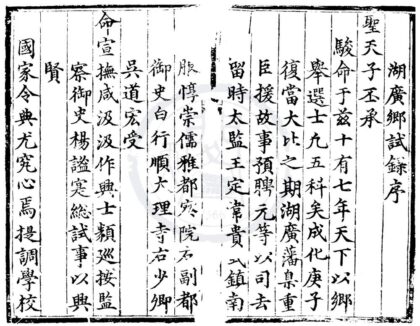 湖廣鄉試錄序
聖天子丕承
駿命于茲十有七年天下以鄉
舉選士凡五科矣成化庚子
復當大比之期湖廣藩臬重
臣援故事預聘元等以司去
留時太監王定韋貴式鎮南
服惇崇儒雅都察院右副都
御史白行順大理寺右少卿
吳道宏受
命宣撫咸汲汲作興士類巡按監
察御史楊謐寔總試事以興
賢
國家令典尤究心焉提調學校